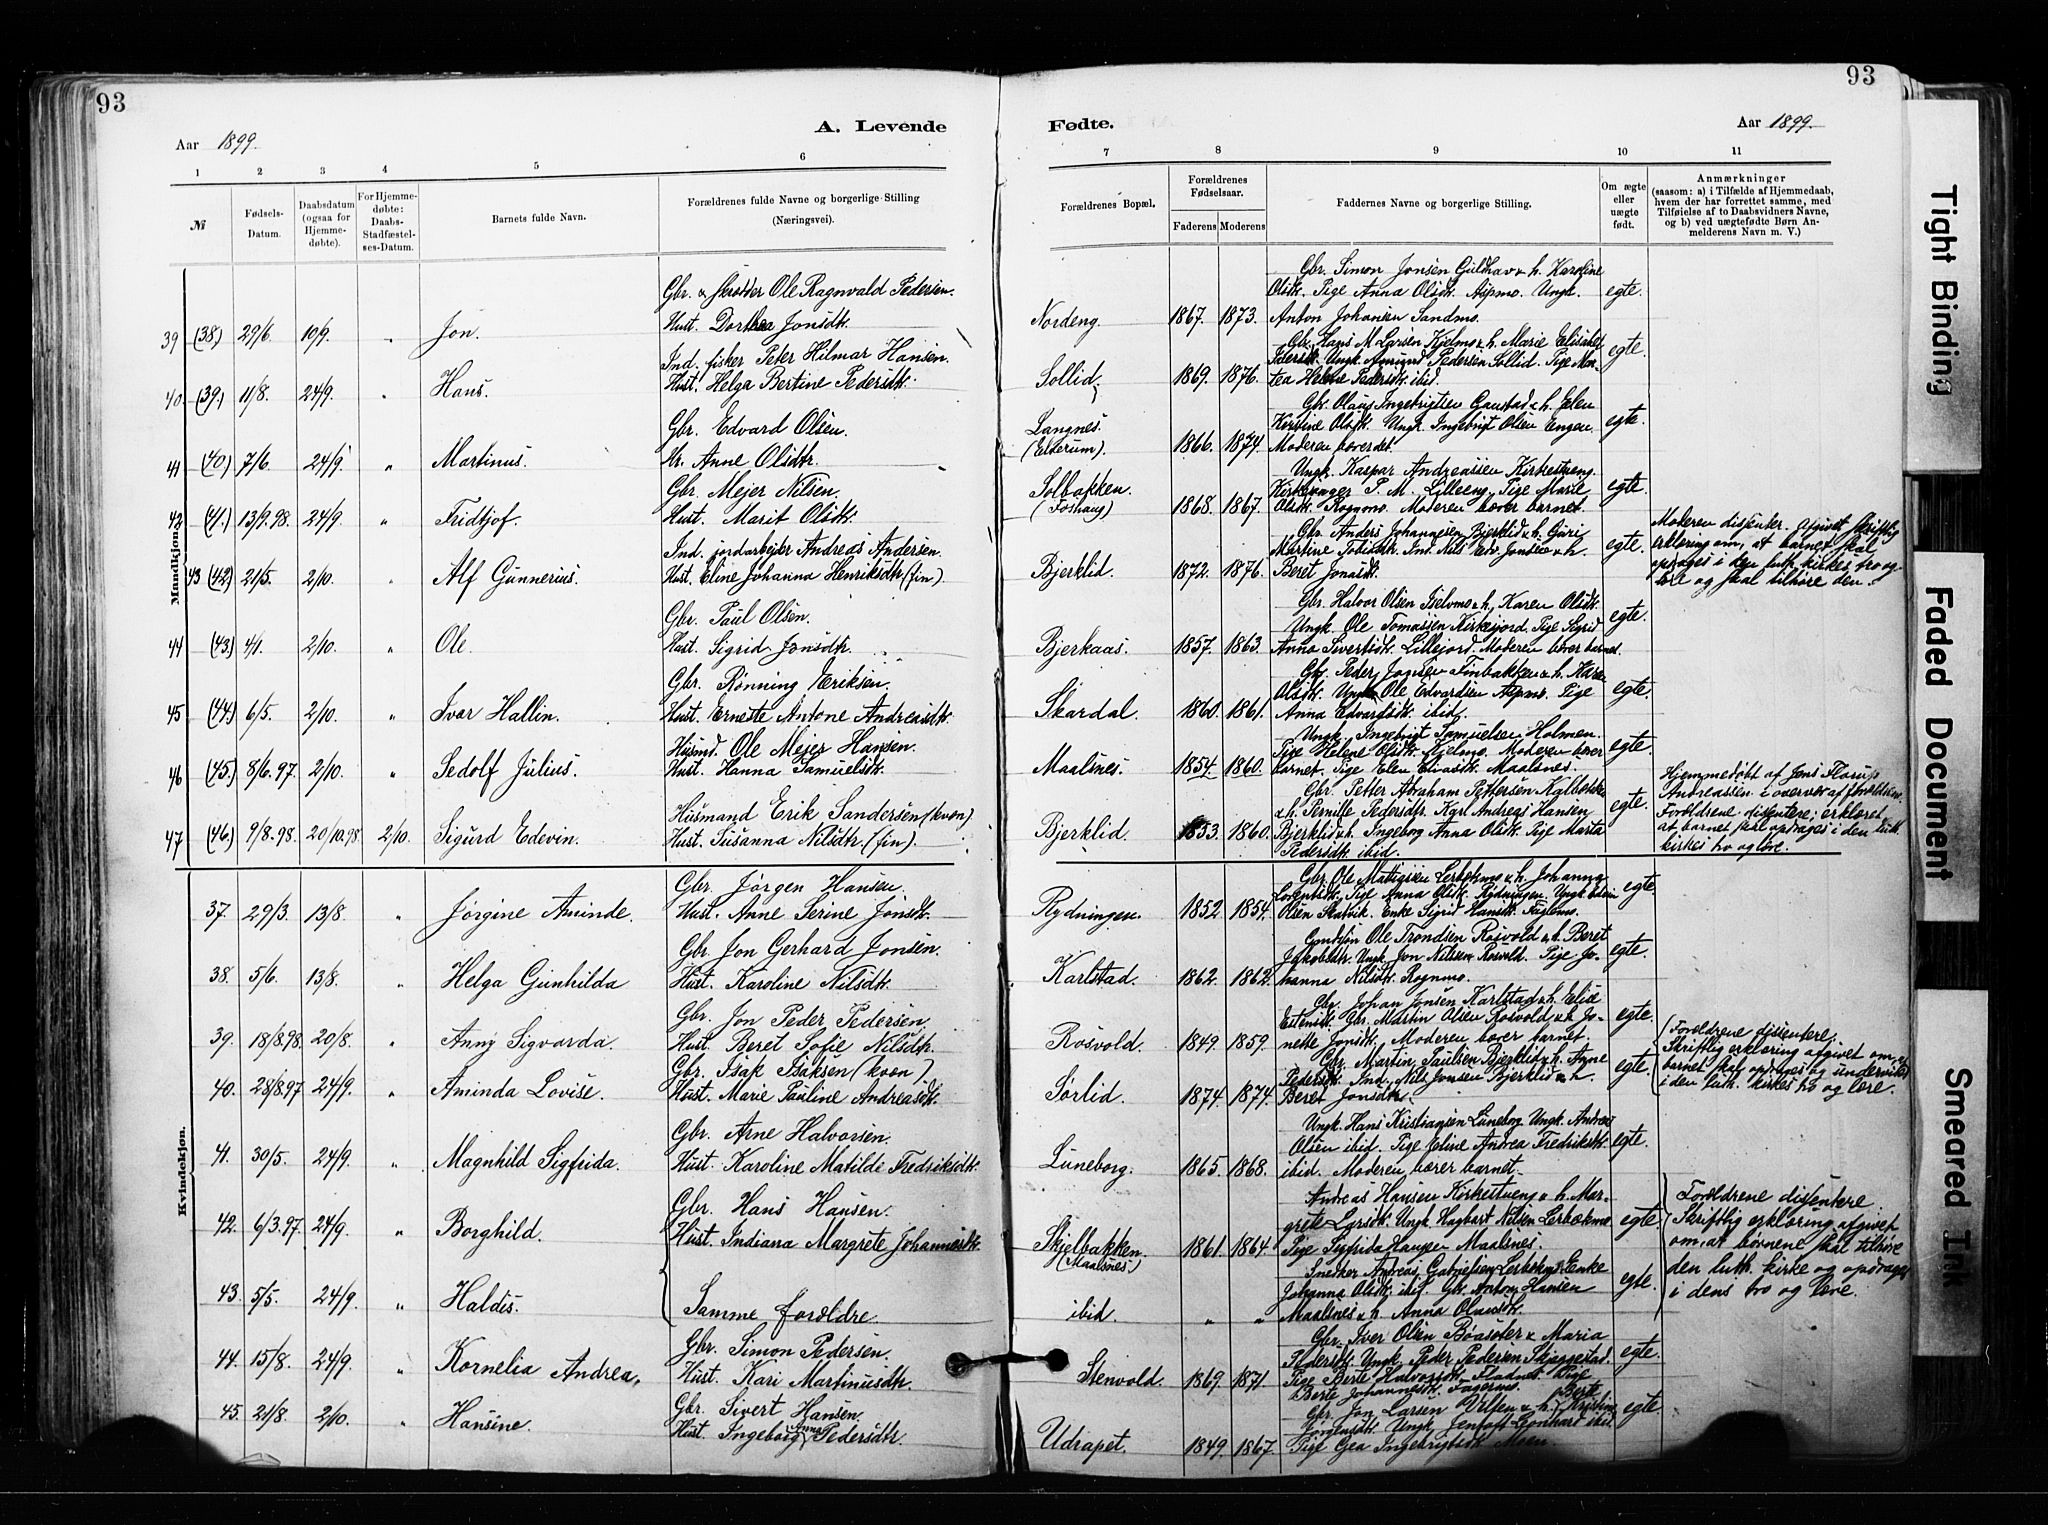 93
93
A. Levende Fødte.
Aar 1899.
Aar 1899.
1 2 3 4 5 6 7 8 9 10 11
№
Fødsels-Datum.
Daabsdatum (ogsaa for Hjemmedøbte).
For Hjemmedøbte: Daabs-Stadfæstelses-Datum.
Barnets fulde Navn.
Forældrenes fulde Navne og borgerlige Stilling (Næringsvei).
Forældrenes Bopæl.
Forældrenes Fødselsaar.
Faderens Moderens
Faddernes Navne og borgerlige Stilling.
Om ægte eller uægte født.
Anmærkninger
(saasom: a) i Tilfælde af Hjemmedaab, hvem der har forrettet samme, med Tilføielse af to Daabsvidners Navne, og b) ved uægtefødte Børn Anmelderens Navn m. V.)
Mandkjøn.
39 (38) 29/6. 10/9. „ Jon. Gbr. & skrædder Ole Ragnvald Pedersen. Hust. Dorthea Jonsdtr. Nordeng. 1867. 1873. Gbr. Simon Jonsen Guldhav & h. Karoline Olsdtr. Pige Anna Olsdtr. Aspmo. Ungk. Anton Johansen Sandmo. egte.
40. (39.) 11/8. 24/9. „ Hans. Ind. fisker Peter Hilmar Hansen. Hust. Helga Bertine Pedersdtr. Sollid. 1869. 1876. Gbr. Hans M. Larsen Kjelmo & h. Marie Elisabet Pedersdtr. Ungk. Amund Pedersen Sollid. Pige Martea Helene Pedersdtr. ibid. egte.
41 (40.) 7/6. 24/9. „ Martinus. Gbr. Edvard Olsen. H. Anne Olsdtr. Langnes. (Elverum). 1866. 1874. Gbr. Olaus Ingebrigtsen Gaustad & h. Elen Kerstine Olsdtr. Ungk. Ingebrigt Olsen Engen. Moderen bærer det. egte.
42 (41.) 13/9.98. 24/9. „ Fridtjof. Gbr. Mejer Nilsen. Hust. Marit Olsdtr. Solbakken. (Foshaug) 1868. 1867. Ungk. Kaspar Andreassen Kirkestueng. Kirkesanger P. M. Lilleeng. Pige Marie Olsdtr. Rognmo. Moderen bærer barnet. egte.
43 (42) 21/5. 2/10. „ Alf Gunnerius. Ind. jordarbejder Andreas Andersen. Hust. Eline Johanna Henriksdtr (fin). Bjerklid. 1872. 1876. Gbr. Anders Johannesen Bjerklid & h. Guri Martine Tobisdtr. Ind. Nils Edv. Jonsen & h. Beret Jonasdtr. egte. Moderen disenter. Afgivet skriftlig erklæring om, at barnet skal opdrages i den luth. kirkes tro og lære og skal tilhøre den.
44 (43.) 4/1. 2/10. „ Ole. Gbr. Paul Olsen. Hust. Sigrid Jonsdtr. Bjerkaas. 1857. 1863. Gbr. Halvor Olsen Iselvmo & h. Karen Olsdtr. Ungk. Ole Tomassen Kirkesjord. Pige Sigrid Anna Sivertsdtr. Lillejord. Moderen bærer barnet. egte.
45 (44.) 6/5. 2/10. „ Ivar Hallin. Gbr. Rønning Eriksen. Hust. Erneste Antone Andreasdtr. Skardal. 1860. 1861. Gbr. Peder Jonsen Finbakken & h. Karen Olsdtr. Ungk. Ole Edvardsen Aspmo. Pige Anna Edvardsdtr. ibid. egte.
46 (45.) 8/6.97. 2/10. „ Sedolf Julius. Husmd. Ole Mejer Hansen. Hust. Hanna Samuelsdtr. Maalsnes. 1854. 1860. Ungk. Ingebrigt Samuelsen Holmen. Pige Helene Olsdtr. Kjelmo. Moderen bærer barnet. Pige Elen Eliasdtr. Maalsnes. egte.
47 (46.) 9/8.98. 20/10.98 2/10. Sigurd Edevin. Husmand Erik Sandersen (kvæn) Hust. Susanna Nilsdtr. (fin). Bjerklid. 1853. 1860. Gbr. Petter Abraham Pettersen & h. Pernille Pedersdtr. Karl Andreas Hansen Bjerklid & h. Ingeborg Anna Olsdtr. Pige Marta Pedersdtr. ibid. egte. Hjemmedøbt af Jens Florus Andreassen i overvær af forældrene. Forældrene disentere; erklæret at barnet skal opdrages i den luth. kirkes tro og lære.
Kvindekjøn.
37. 29/3. 13/8. „ Jørgine Aminde. Gbr. Jørgen Hansen. Hust. Anne Serine Jonsdtr. Rydningen. 1852 1854. Gbr. Ole Mathisen Lerbækmo & h. Johanna Lorentsdtr. Pige Anna Olsdtr. Rydningen. Ungk. Edvin Olsen Skatvik. Enke Sigrid Hansdtr. Fagermo. egte.
38. 5/6. 13/8. „ Helga Gunhilda Gbr. Jon Gerhard Jonsen. Hust. Karoline Nilsdtr. Karlstad. 1862. 1862. Ole Trondsen Rosvold & h. Beret Jakobsdtr. Ungk. Jon Nilsen Rosvold. Pige Johanna Nilsdtr. Rognmo. egte.
39. 18/8.98. 20/8. „ Anny Sigvarda. Gbr. Jon Peder Pedersen. Hust. Beret Sofie Nilsdtr. Rosvold. 1849. 1859. Gbr. Johan Jonsen Karlstad & h. Elise Estensdtr. Gbr. Martin Olsen Rosvold & h. Jonette Jonsdtr. Moderen bærer barnet. egte.
40. 28/8.97 24/9. „ Aminda Lovise. Gbr. Isak Isaksen (kvæn). Hust. Marie Pauline Andreasdtr. Sørlid. 1874. 1874. Gbr. Martin Paulsen Bjerklid & h. Anne Pedersdtr. Ind. Nils Jonsen Bjerklid & h. Beret Jonsdtr. egte. Forældrene disentere; Skriftlig erklæring afgivet om, at barnet skal opdrages og undervises i den luth. kirkes tro og lære.
41. 30/5. 24/9. „ Magnhild Sigfrida. Gbr. Arne Halvorsen. Hust. Karoline Matilde Fredriksdtr. Luneborg. 1865. 1868. Ungk. Hans Kristiansen Luneborg. Ungk. Andreas Olsen ibid. Pige Eline Andrea Fredriksdtr. ibid. Moderen bærer barnet. egte.
42. 6/3.97. 24/9. „ Borghild. Gbr. Hans Hansen. Hust. Indiana Margrete Johannesdtr. Skjelbakken. (Maalsnes) 1861. 1864. Andreas Hansen Kirkestueng & h. Margrete Larsdtr. Ungk. Hagbart Nilsen Lerbækmo Pige Sigfrida Hansen Maalsnes. egte. Forældrene disentere Skriftlig erklæring afgivet om, at børnene skal tilhøre den luth. kirke og opdrages i dens tro og lære.
43. 5/5. 24/9. „ Haldis. Samme forældre. ibid. „ „ Snedker Andreas Gabrielsen Lerbækmo. Enke Johanna Olsdtr. ibid. Gbr. Anton Hansen Maalsnes & h. Anna Olausdtr. egte.
44. 15/8. 24/9. „ Kornelia Andrea. Gbr. Simon Pedersen. Hust. Kari Martinusdtr. Stenvold. 1869. 1871. Gbr. Iver Olsen Bøasæter & Maria Pedersdtr. Ungk. Peder Pedersen Skjeggestad. Pige Berte Halvorsdtr. Fladnes. Pige Berte Johannesdtr. Fagermo. egte.
45. 21/8. 2/10. „ Hansine. Gbr. Sivert Hansen. Hust. Ingeborg Anna Pedersdtr. Udrapet. 1849. 1867. Gbr. Jon Larsen & h. Berte Kristine Jørgensdtr. Ungk. Jentoft Leonhart ibid Pige Gea Ingebrigtsdtr. Moen. egte.
Tight Binding
Faded Document
Smeared Ink